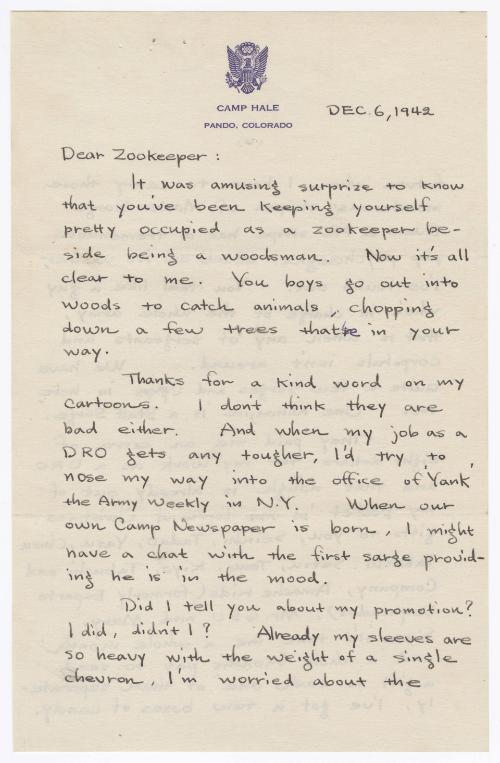 CAMP HALE
PANDO, COLORADO
DEC. 6, 1942
Dear Zookeeper :
It was amusing surprize to know
that you've been keeping yourself
pretty occupied as a zookeeper be-
side being a woodsman. Now it's all
clear to me. You boys go out into
woods to catch animals, chopping
down a few trees that're in your
way.
Thanks for a kind word on my
cartoons. I don't think they are
bad either. And when my job as a
DRO gets any tougher, I'd try to
nose my way into the office of 'Yank'
the Army Weekly in N.Y. When our
own Camp Newspaper is born, I might
have a chat with the first sarge provid-
ing he is in the mood.
Did I tell you about my promotion?
I did, didn't I? Already my sleeves are
so heavy with the weight of a single
chevron, I'm worried about the